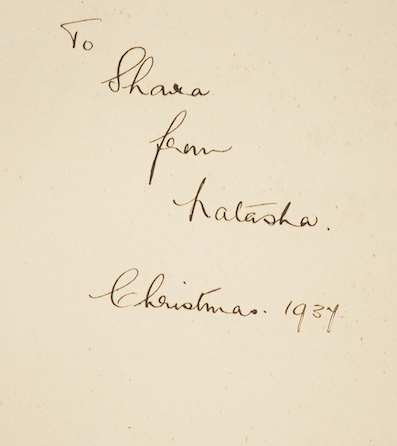 To
Shara
from
Natasha.
Christmas. 1937.